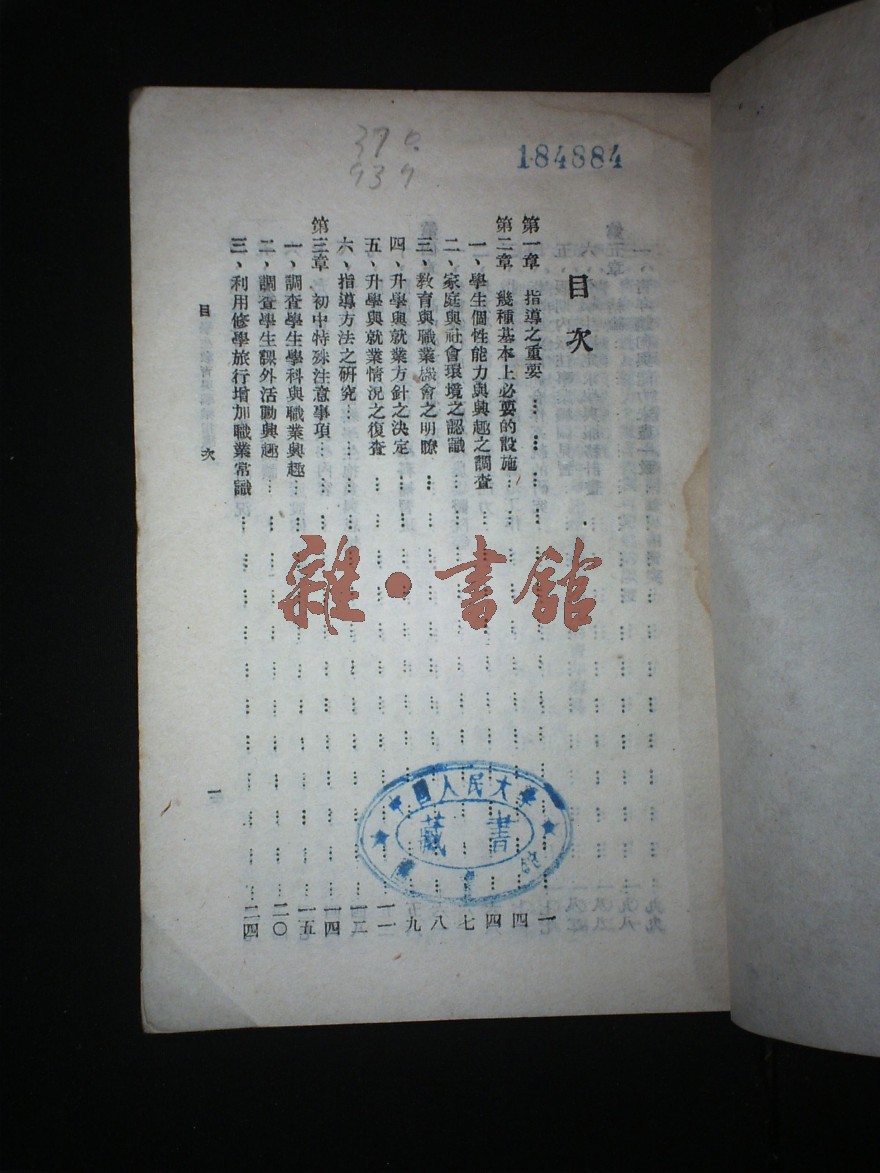 370.
939
184884
目次
第一章 指導之重要………一
第二章 幾種基本上必要的設施………四
一、學生個性能力與興趣之調查………四
二、家庭與社會環境之認識………七
三、教育與職業機會之明瞭………八
四、升學與就業方針之決定………九
五、升學與就業情況之復查………一一
六、指導方法之研究………一二
第三章 初中特殊注意事項………一四
一、調查學生學科與職業興趣………一五
二、調查學生課外活動興趣………二〇
三、利用修學旅行增加職業常識………二四
目次
一
雜·書館
中國人民大學
藏書